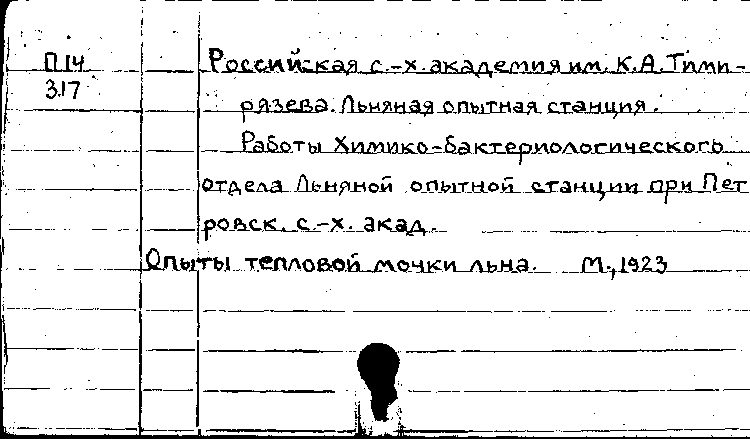 П14
317
Российская с.-х. академия им. К.А.Тими-
рязева. Льняная опытная станция.
Работы Химико-бактериологического
отдела Льняной опытной станции при Пет
ровск. с.-х. акад.
Опыты тепловой мочки льна. М., 1923